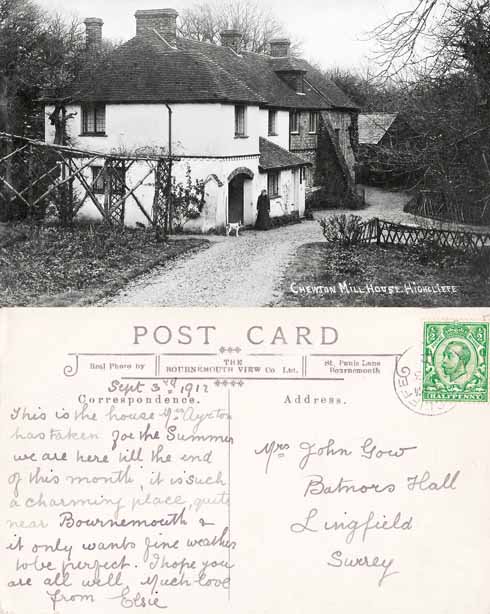 CHEWTON MILL HOUSE. HIGHCLIFFE
POST CARD
Real Photo by
THE
BOURNEMOUTH VIEW CO. LTD.
St. Pauls Lane
Bournemouth
HALFPENNY
Sept 3rd. 1912
Correspondence.
Address.
This is the house Mrs Ayrton
has taken for the Summer
we are here till the end
of this month, it is such
a charming place, quite
near Bournemouth &
it only wants fine weather
to be perfect. I hope you
are all well, Much love
from Elsie
Mrs John Gow
Batnors Hall
Lingfield
Surrey